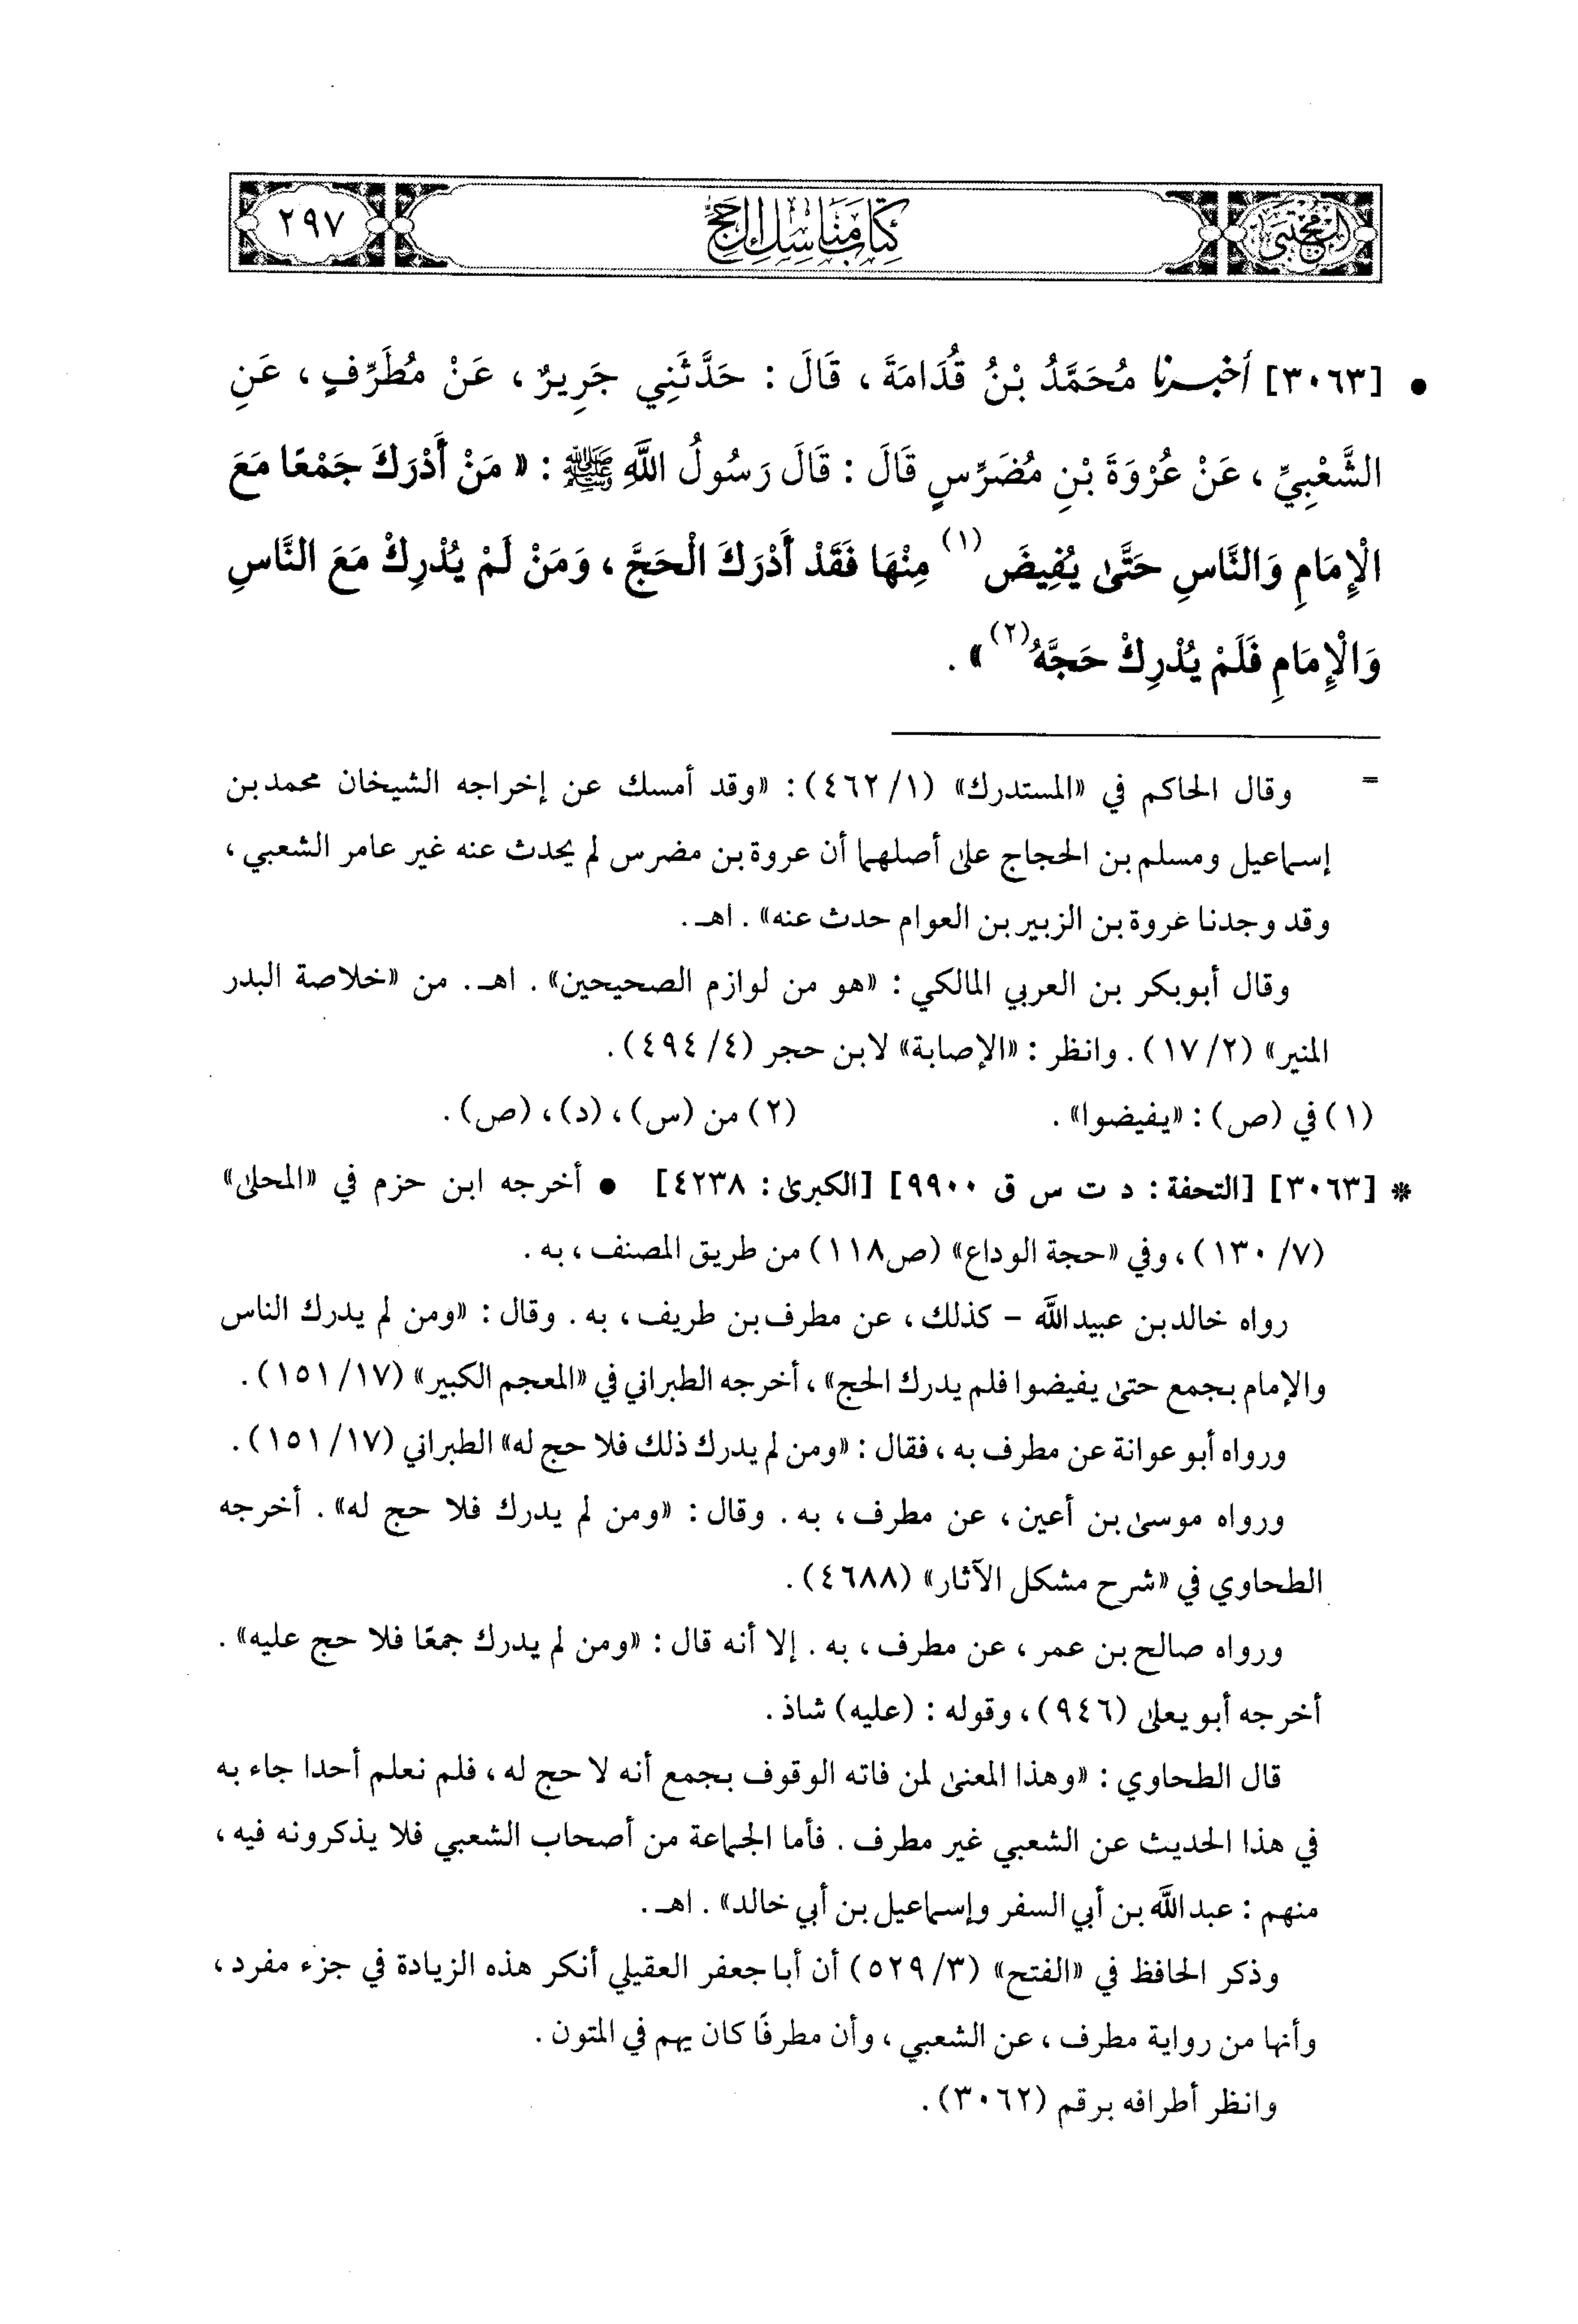 المجتبى
كتاب مناسك الحج
٢٩٧
• [٣٠٦٣] أخبرنا مُحَمَّدُ بْنُ قُدَامَةَ ، قَالَ : حَدَّثَنِي جَرِيرٌ ، عَنْ مُطَرِّفٍ ، عَنِ
الشَّعْبِيِّ ، عَنْ عُرْوَةَ بْنِ مُضَرِّسٍ قَالَ : قَالَ رَسُولُ اللَّهِ ﷺ : « مَنْ أَدْرَكَ جَمْعًا مَعَ
الْإِمَامِ وَالنَّاسِ حَتَّىٰ يُفِيضَ (١) مِنْهَا فَقَدْ أَدْرَكَ الْحَجَّ ، وَمَنْ لَمْ يُدْرِكْ مَعَ النَّاسِ
وَالْإِمَامِ فَلَمْ يُدْرِكْ حَجَّهُ (٢) » .
= وقال الحاكم في «المستدرك» (١/ ٤٦٢) : «وقد أمسك عن إخراجه الشيخان محمد بن
إسماعيل ومسلم بن الحجاج علىٰ أصلهما أن عروة بن مضرس لم يحدث عنه غير عامر الشعبي ،
وقد وجدنا عروة بن الزبير بن العوام حدث عنه» . اهـ .
وقال أبوبكر بن العربي المالكي : «هو من لوازم الصحيحين» . اهـ . من «خلاصة البدر
المنير» (٢/ ١٧) . وانظر : «الإصابة» لابن حجر (٤/ ٤٩٤) .
(١) في (ص) : «يفيضوا» . (٢) من (س) ، (د) ، (ص) .
* [٣٠٦٣] [التحفة : د ت س ق ٩٩٠٠] [الكبرىٰ : ٤٢٣٨] • أخرجه ابن حزم في «المحلىٰ»
(٧/ ١٣٠) ، وفي «حجة الوداع» (ص١١٨) من طريق المصنف ، به .
رواه خالد بن عبيد اللَّه - كذلك ، عن مطرف بن طريف ، به . وقال : «ومن لم يدرك الناس
والإمام بجمع حتىٰ يفيضوا فلم يدرك الحج» ، أخرجه الطبراني في «المعجم الكبير» (١٧/ ١٥١) .
ورواه أبو عوانة عن مطرف به ، فقال : «ومن لم يدرك ذلك فلا حج له» الطبراني (١٧/ ١٥١) .
ورواه موسىٰ بن أعين ، عن مطرف ، به . وقال : «ومن لم يدرك فلا حج له» . أخرجه
الطحاوي في «شرح مشكل الآثار» (٤٦٨٨) .
ورواه صالح بن عمر ، عن مطرف ، به . إلا أنه قال : «ومن لم يدرك جمعًا فلا حج عليه» .
أخرجه أبو يعلىٰ (٩٤٦) ، وقوله : (عليه) شاذ .
قال الطحاوي : «وهذا المعنىٰ لمن فاته الوقوف بجمع أنه لا حج له ، فلم نعلم أحدا جاء به
في هذا الحديث عن الشعبي غير مطرف . فأما الجماعة من أصحاب الشعبي فلا يذكرونه فيه ،
منهم : عبد اللَّه بن أبي السفر وإسماعيل بن أبي خالد» . اهـ .
وذكر الحافظ في «الفتح» (٣/ ٥٢٩) أن أبا جعفر العقيلي أنكر هذه الزيادة في جزء مفرد ،
وأنها من رواية مطرف ، عن الشعبي ، وأن مطرفًا كان يهم في المتون .
وانظر أطرافه برقم (٣٠٦٢) .